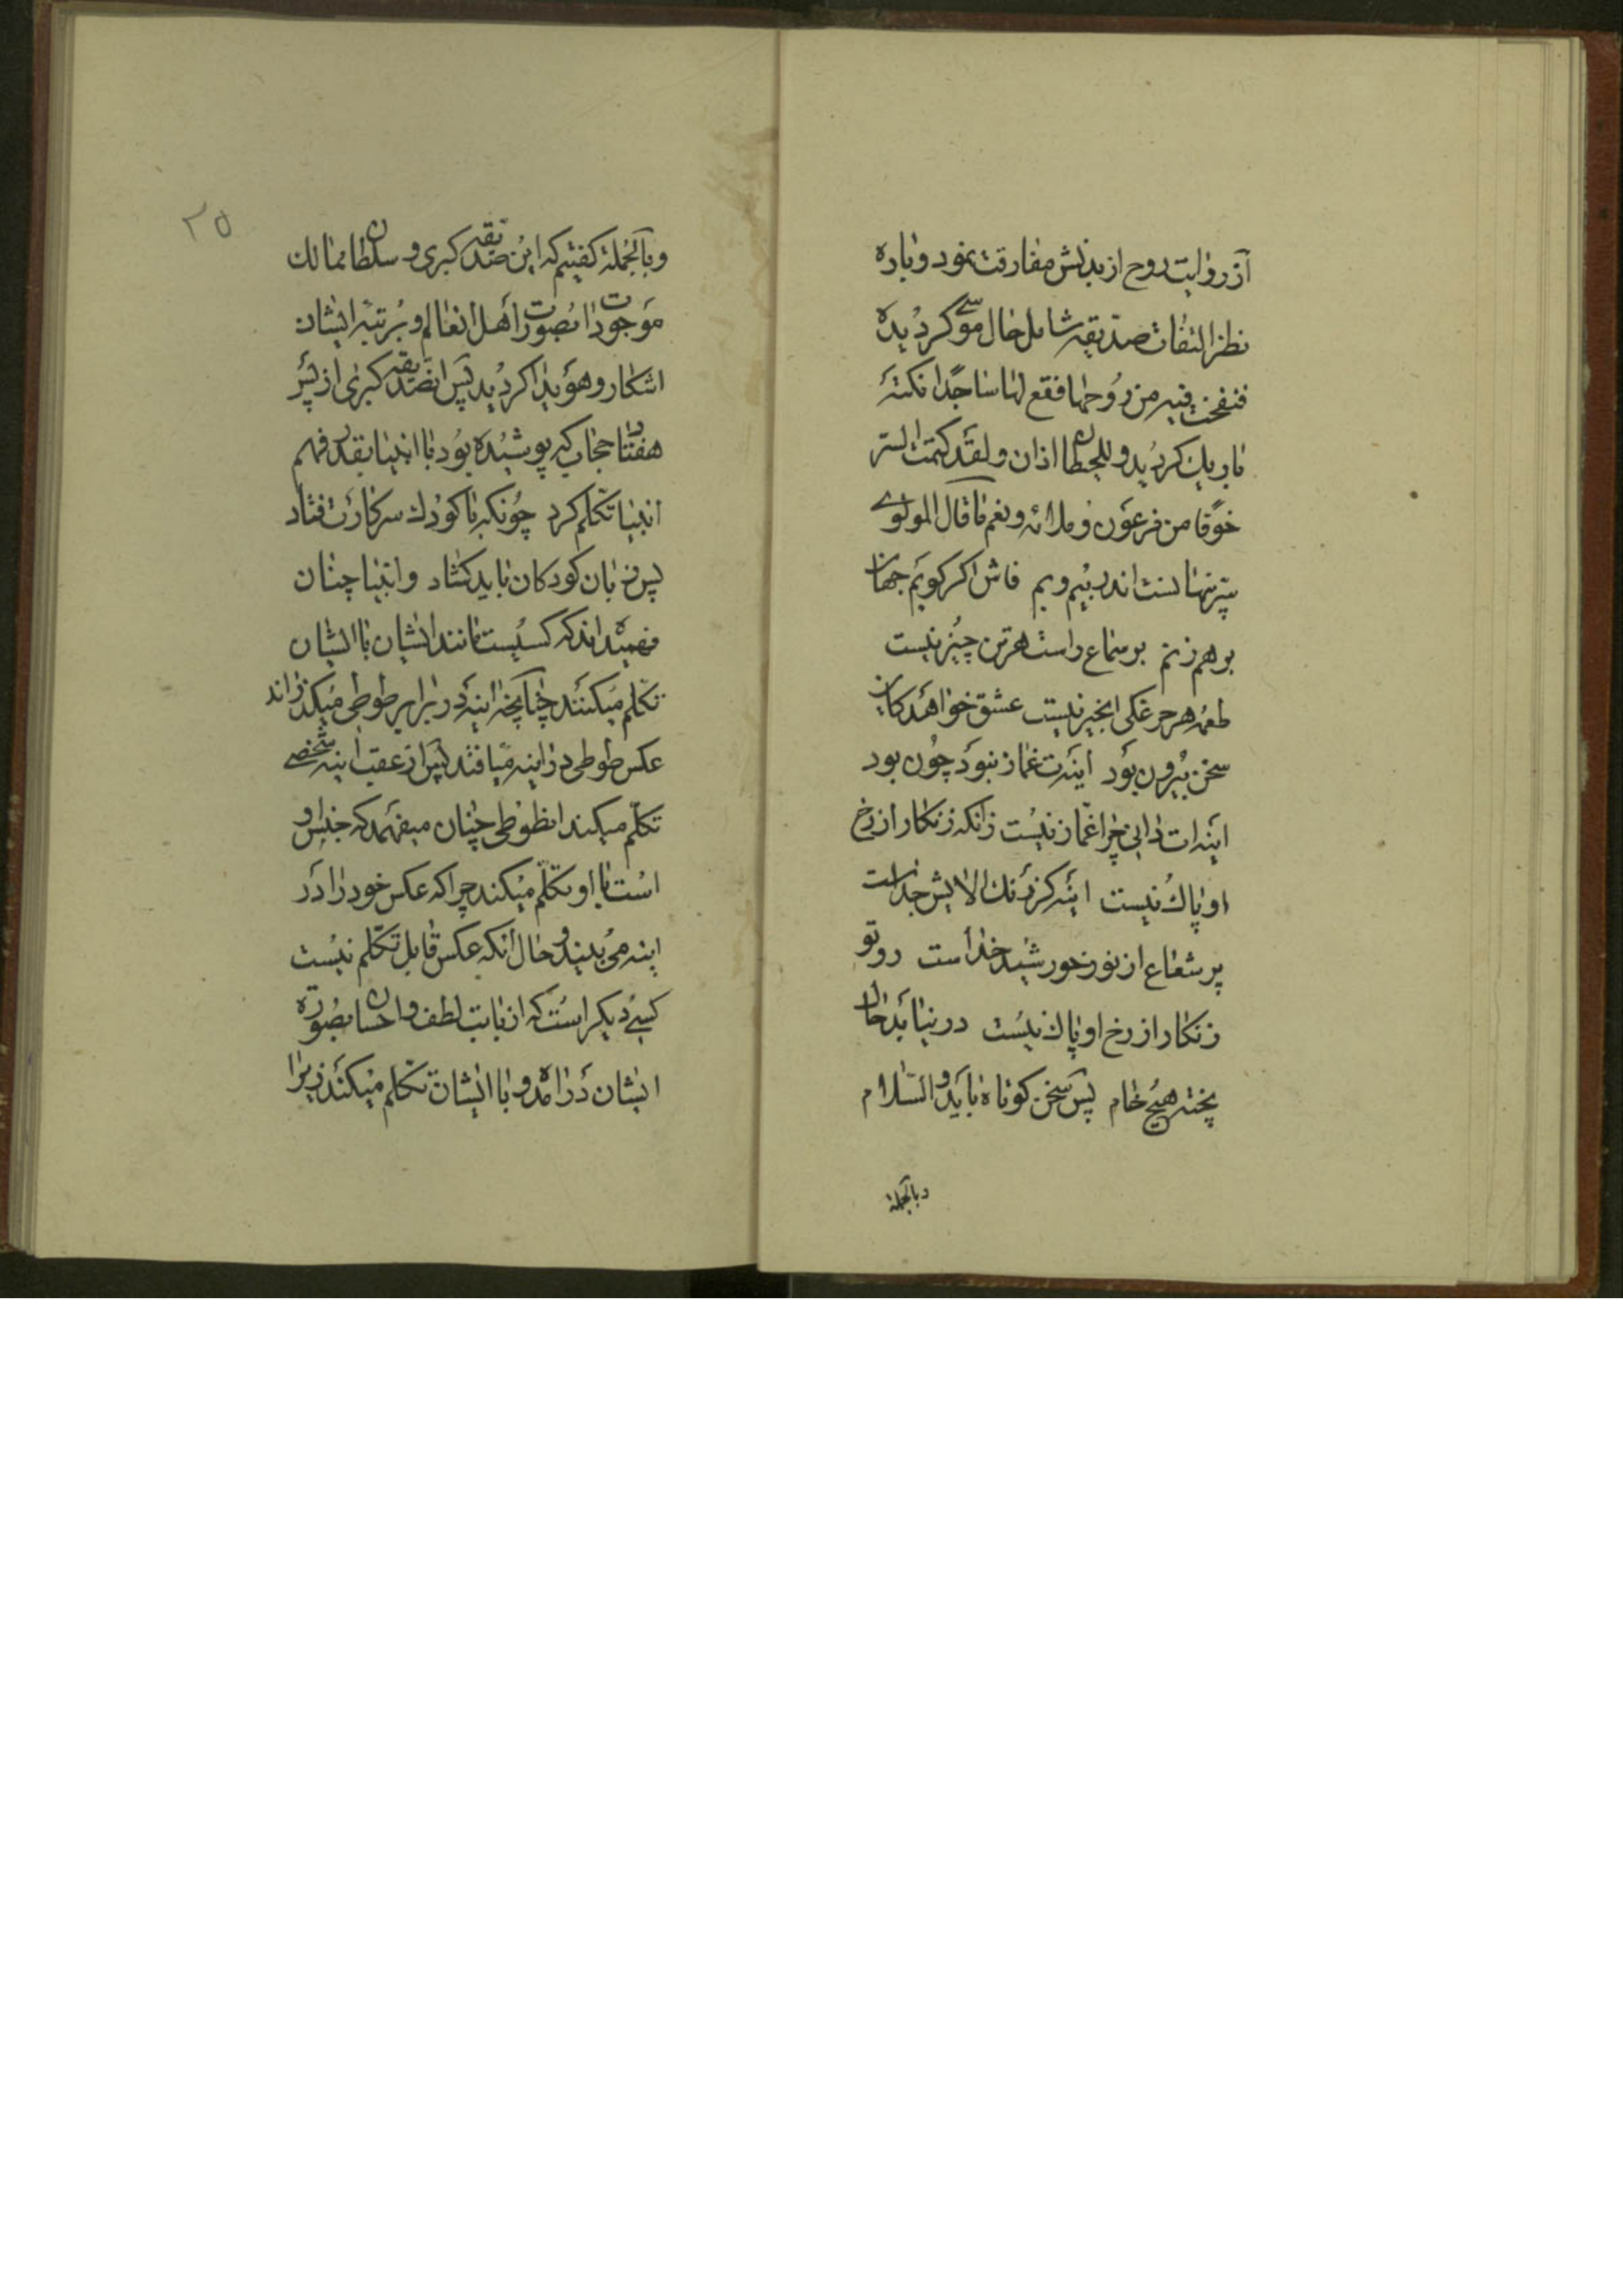 آذر روایت روح از بدنش مفارقت نمود دوباره
نظر التفات صدیقه شامل حال موسی گردیده
فنفخت فیه من روحها فقع لها ساجدا نکتهٔ
باریک کردید و للحیطان اذان و لقد کتمت السّر
خوفا من فرعون و ملائه و نعم ما قال المولوی
سّر پنهانست اندر بیم و بم فاش اکر کویم جهان
بر هم زنم بر سماع راست هر تن چیز نیست
طعمه هر مرغکی انجیر نیست عشق خواهد کاین
سخن بیرون بود اینه‌ت غماز نبود چون بود
اینه‌ات دانی چرا غمّاز نیست زانکه زنکار از رخ
او پاک نیست اینه کز زنک الایش جداست
پر شعاع از نور خورشید خداست رو تو
زنکار از رخ او پاک نیست در نیابد حال
پخته هیچ خام پس سخن کوتاه باید والسّلام
و بالجمله
۲۵
و بالجمله کفتیم که این صدیقه کبری و سلطان ممالک
موجودات بصورت اهل انعالم و بر تبه ایشان
اشکار و هویدا کردید پس انصدیقه کبری از پس
هفتاد حجاب که پوشیده بود با انبیا بقدر فهم
انبیا تکلم کرد چونکه با کودک سرکارت فتاد
پس زبان کودکان باید کشاد و انبیا چنان
فهمیده‌اند که کسیست مانند ایشان با ایشان
تکلم میکنند چنانچه اینه در برابر طوطی میکذارند
عکس طوطی در اینه میافتد پس از عقب اینه شخصی
تکلّم میکند انطوطی چنان میفهمد که جنس او
است با او تکلّم میکند چرا که عکس خود را در
اینه می‌بیند و حال انکه عکس قابل تکلم نیست
کسی دیکر است که از بابت لطف و احسان بصورة
ایشان در امده و با ایشان تکلم میکند زیرا